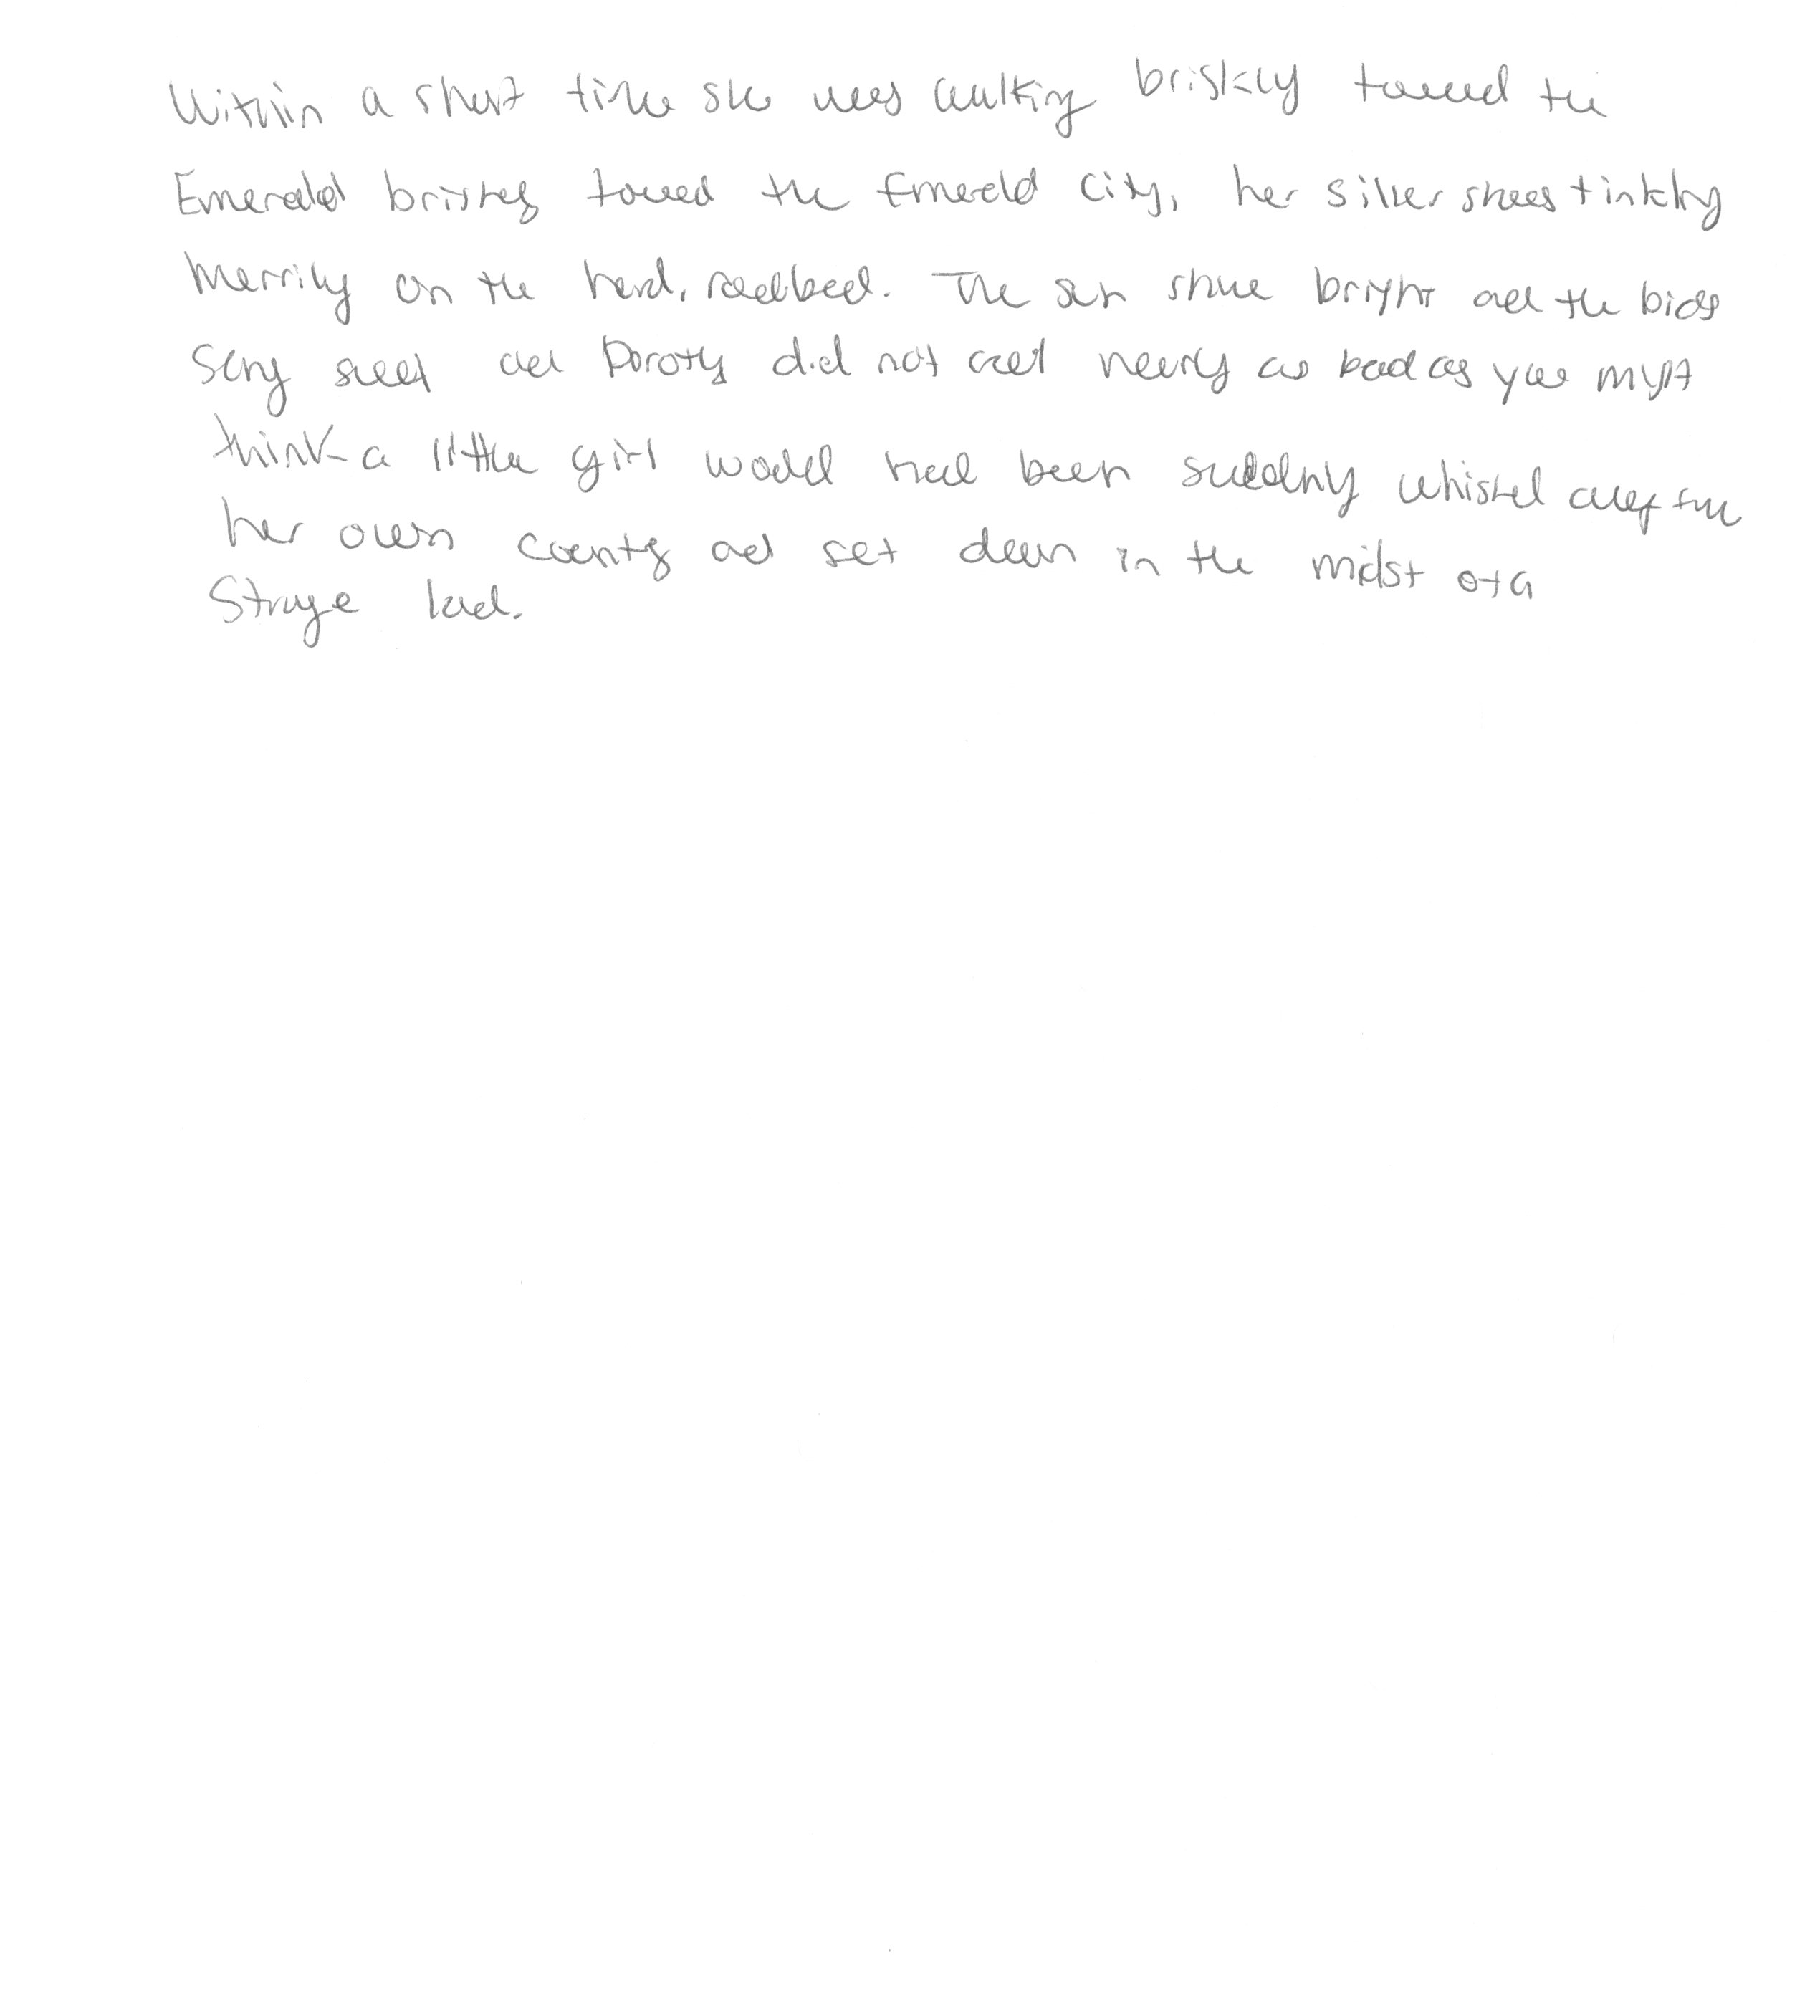 Within a short time she was walking briskly toward the
Emerald briskly toward the Emerald City, her silver shoes tinkling
Merrily on the hard, roadbed. The sun shone bright and the birds
Sang sweet and Dorothy did not feel nearly as bad as you might
think a little girl would had been suddenly whisked away from
her own country and set down in the midst of a
Strange land.